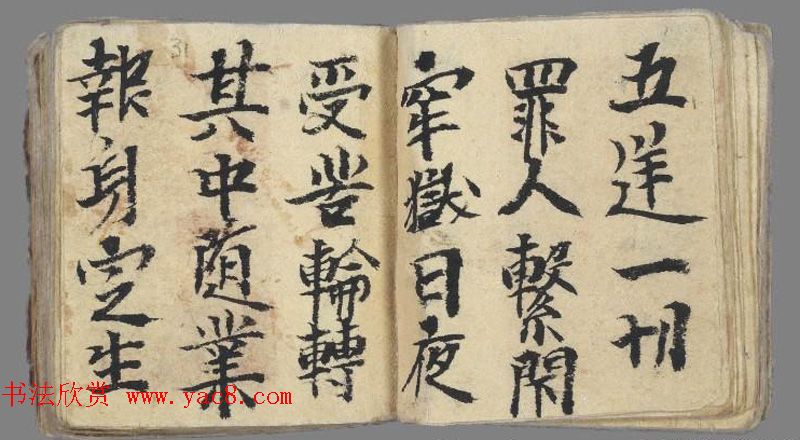 五逆一切
罪人繫閇
窂獄日夜
受苦輪轉
其中随業
報身定生
31
书法欣赏 www.yac8.com